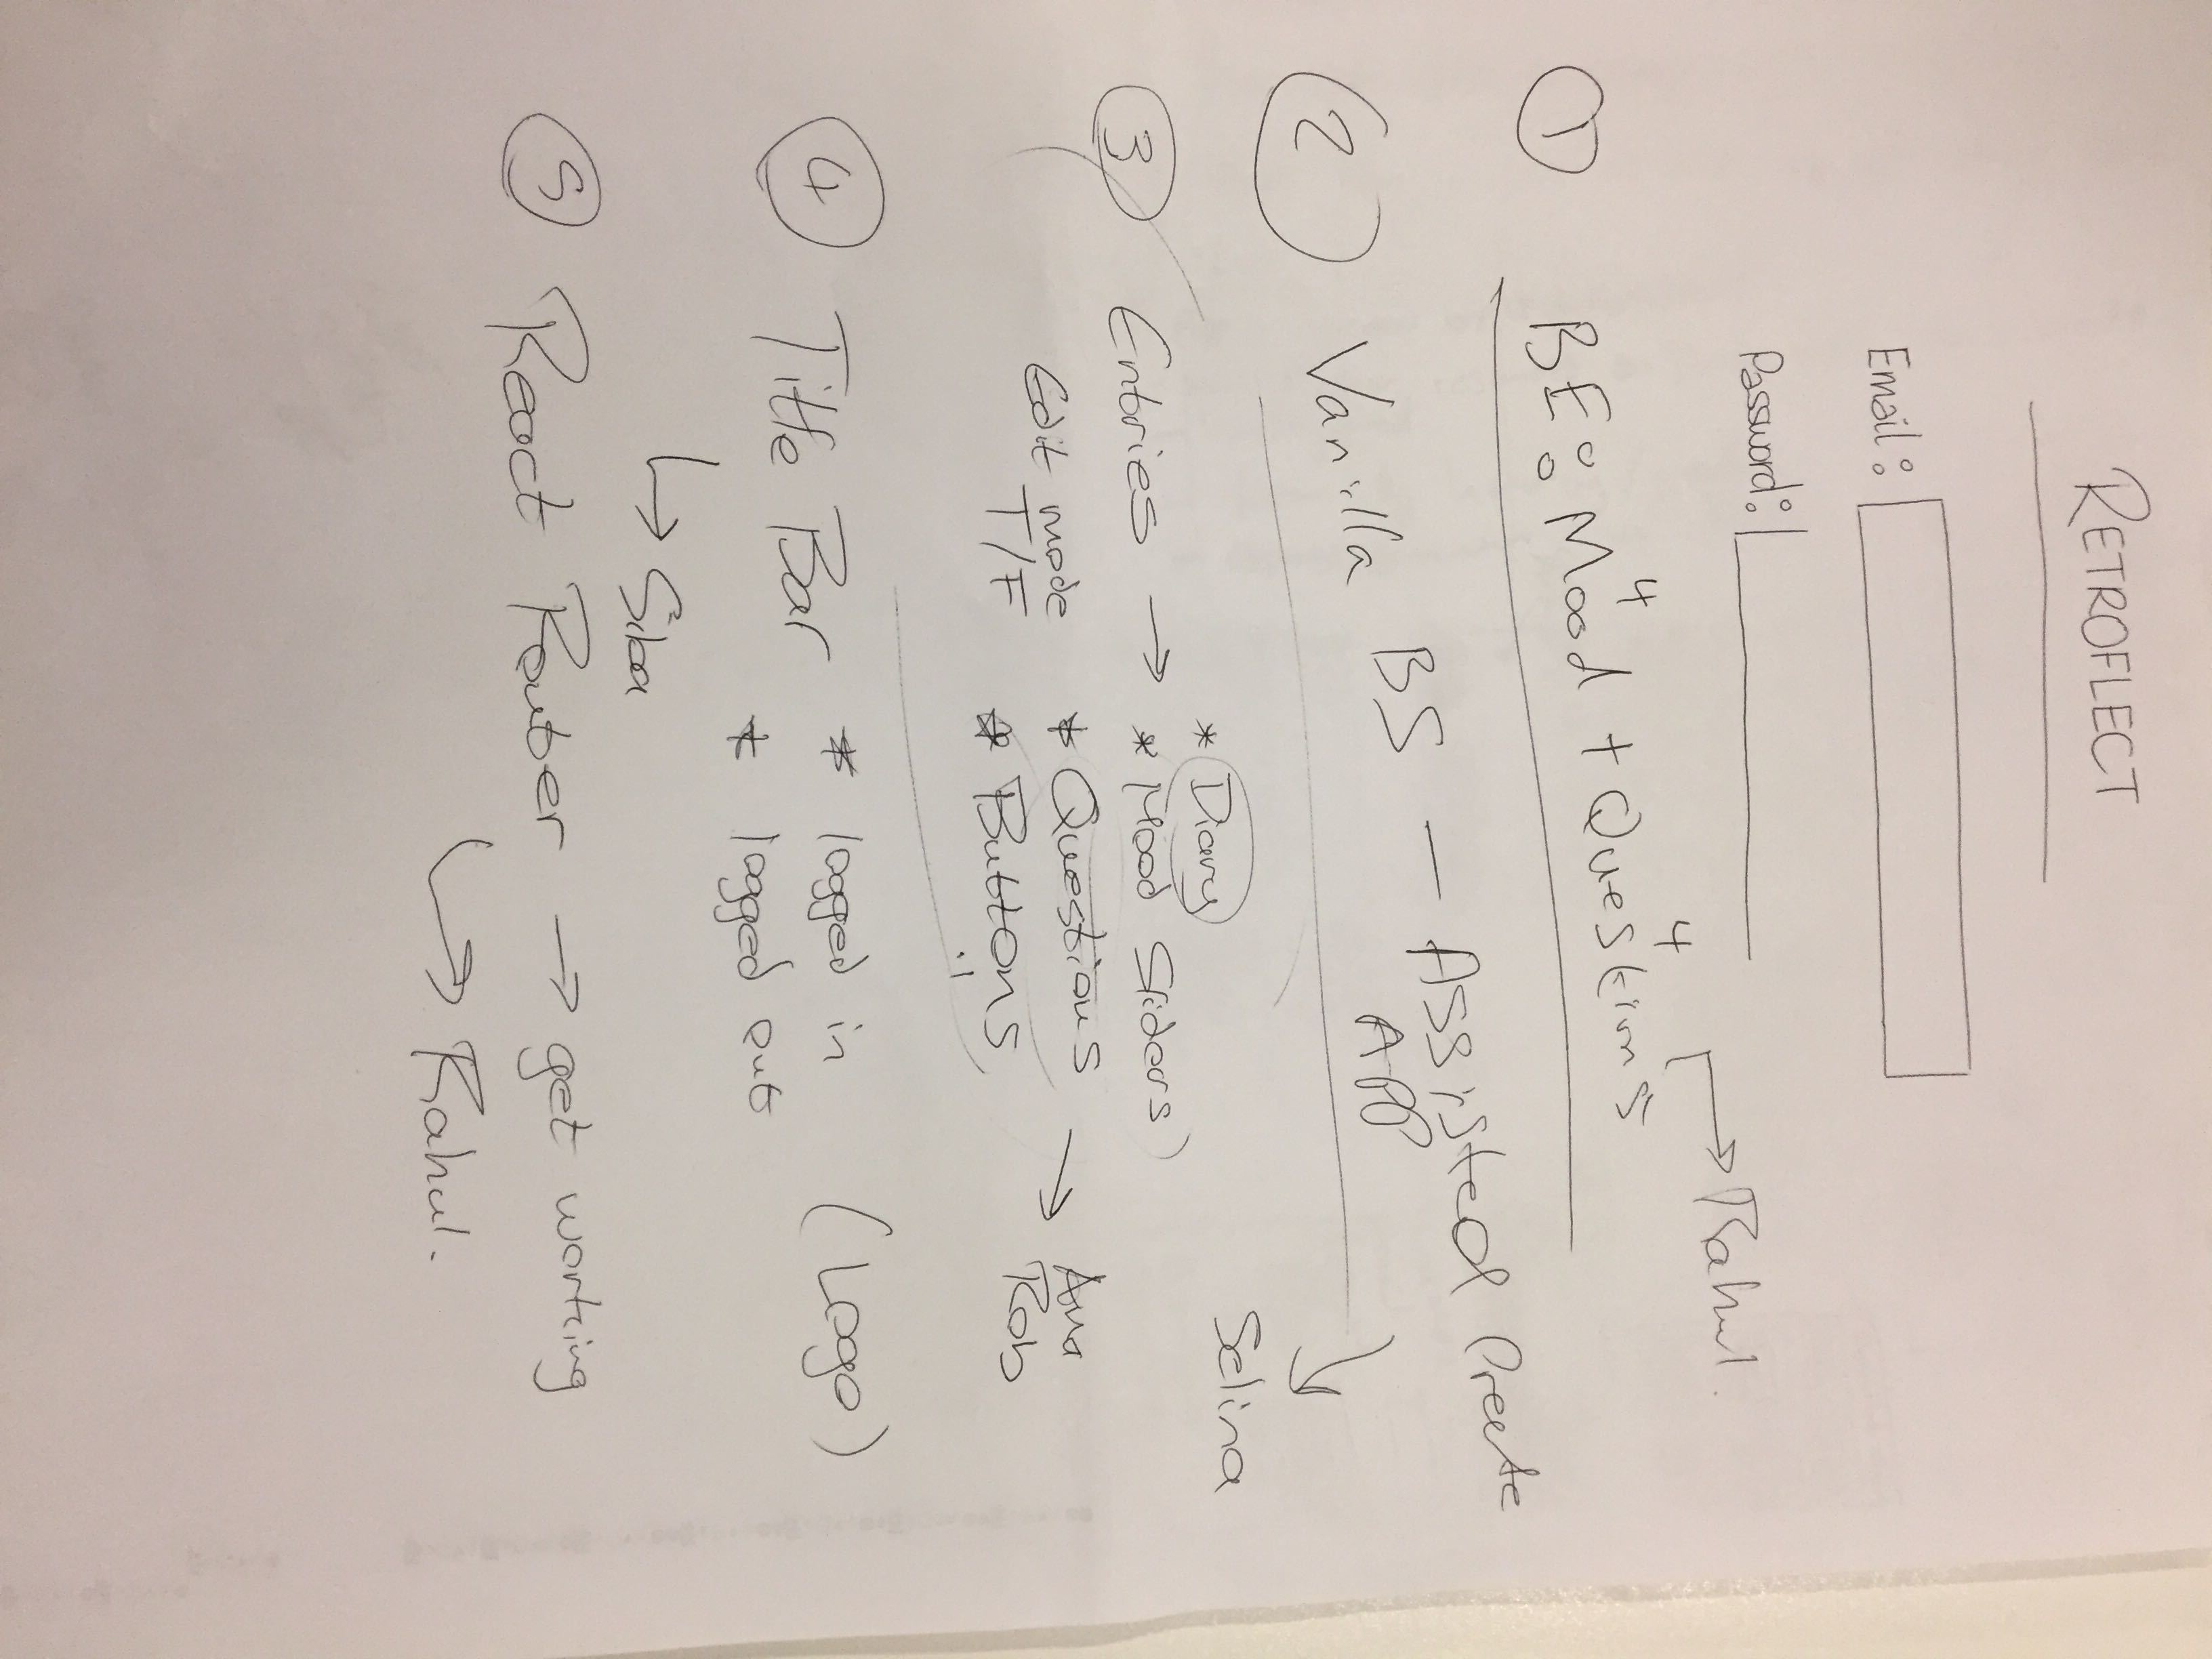 RETROFLECT
Email:
Password:
① BE: Mood 4 + Questions 4 → Rahul.
② Vanilla BS - Assisted Preete
App
→ Selina
③ Entries → * Diary
* Mood Sliders
Edit mode * Questions → Ana
T/F * Buttons Rob
④ Title Bar * logged in (Logo)
* logged out
→ Siba
⑤ React Router → get working
→ Rahul.